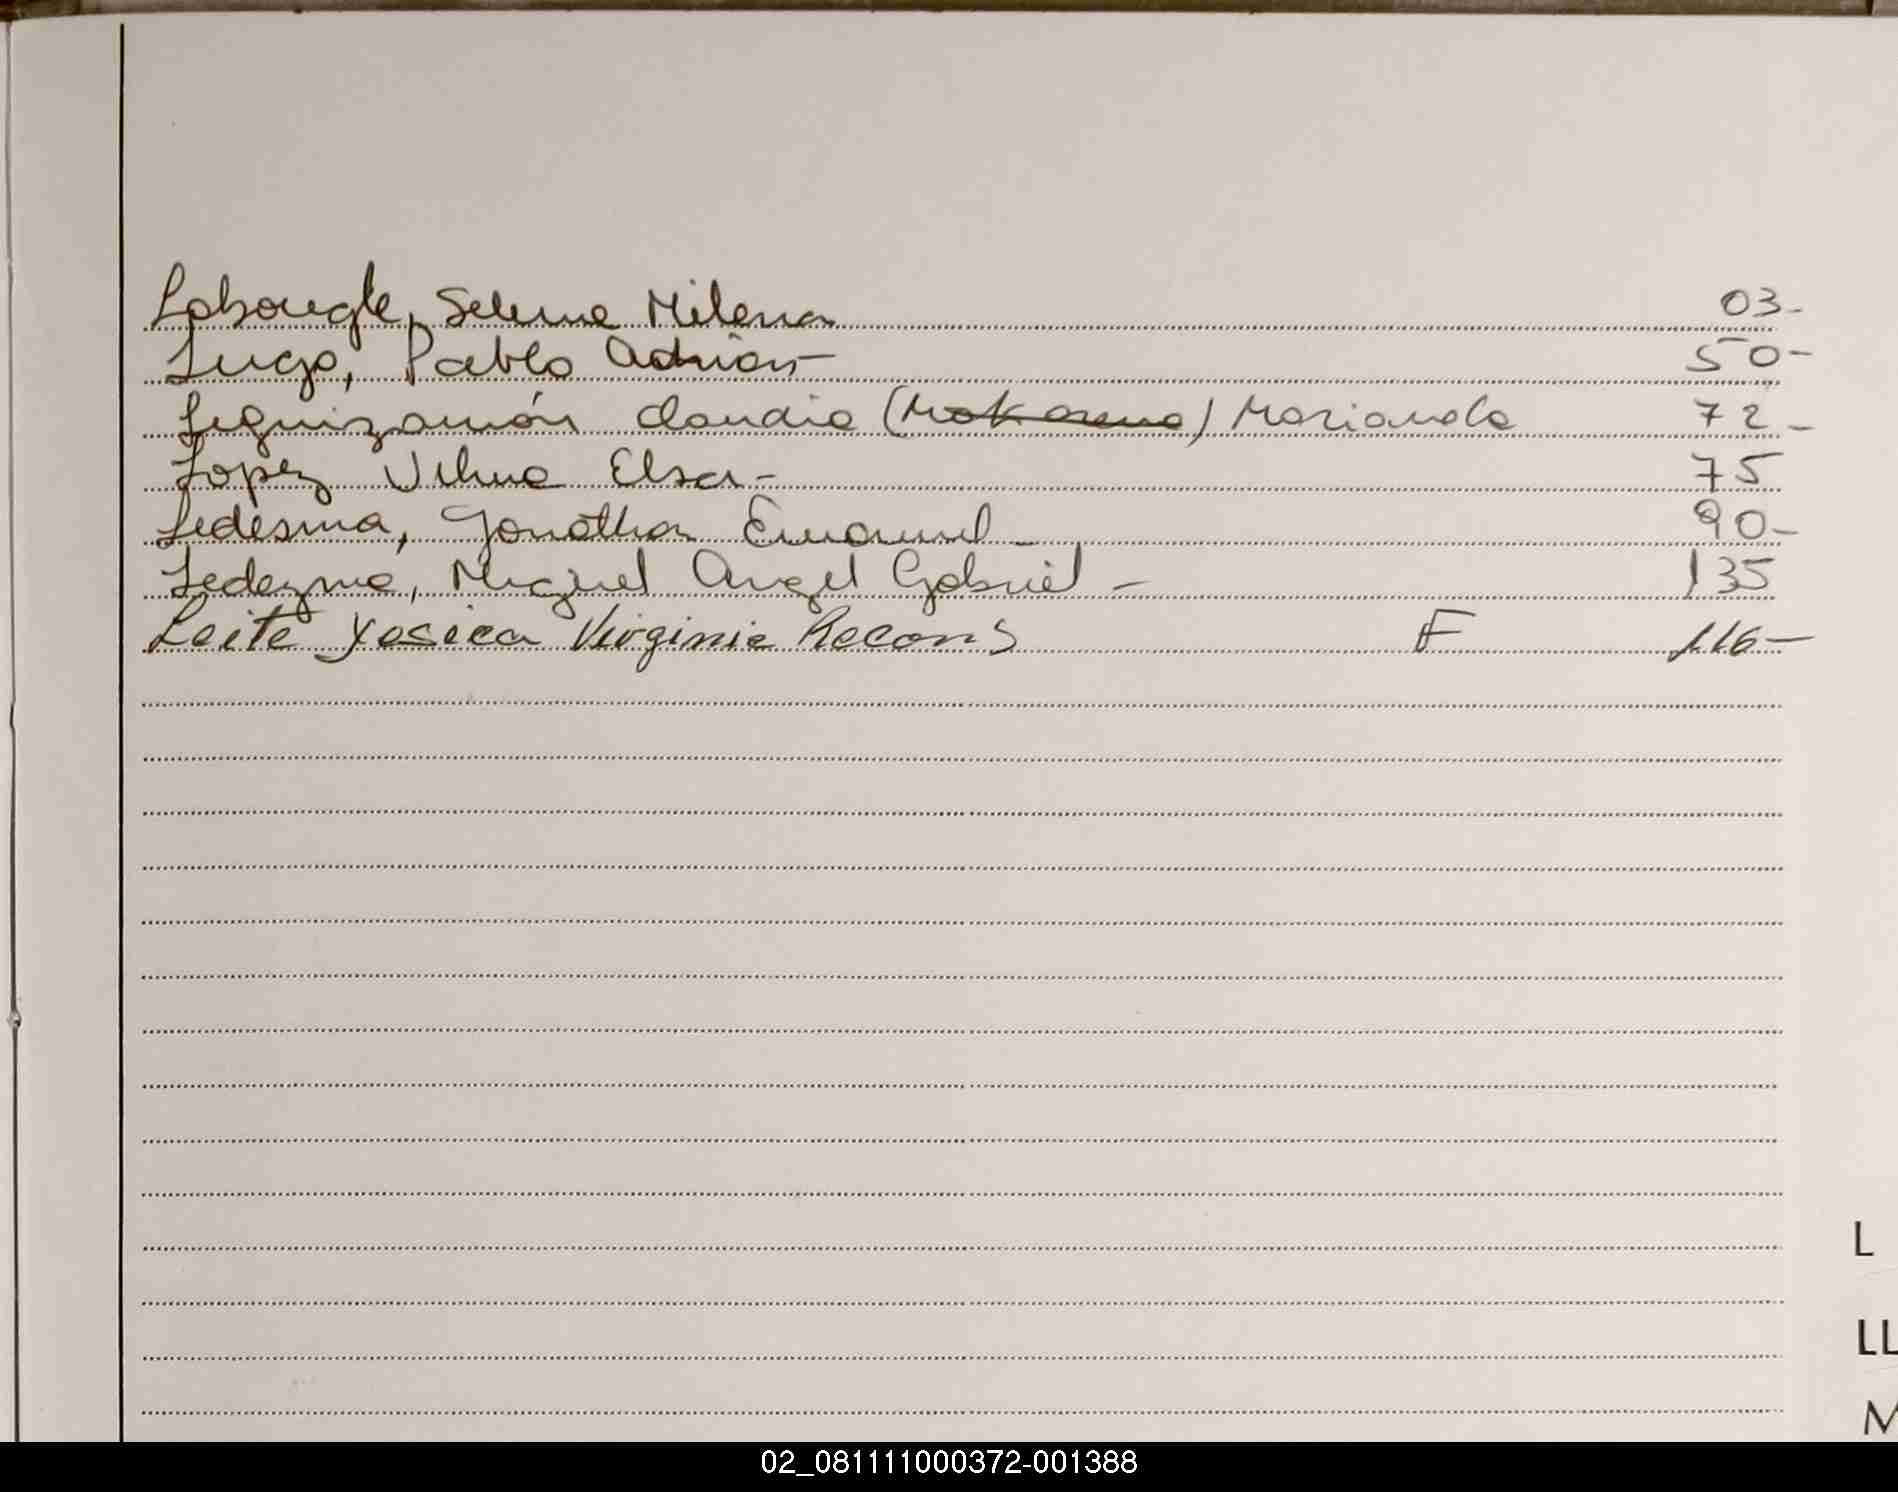 Labougle, Selene Milena 03-
Lugo, Pablo Adrian- 50-
Leguizamón Claudia (Makarena) Marianela 72-
Lopez Vilma Elsa- 75
Ledesma, Jonathan Emanuel- 90-
Ledezma, Miguel Angel Gabriel- 135
Leite Yesica Virginia Recons F 116-
L
LL
M
02_081111000372-001388